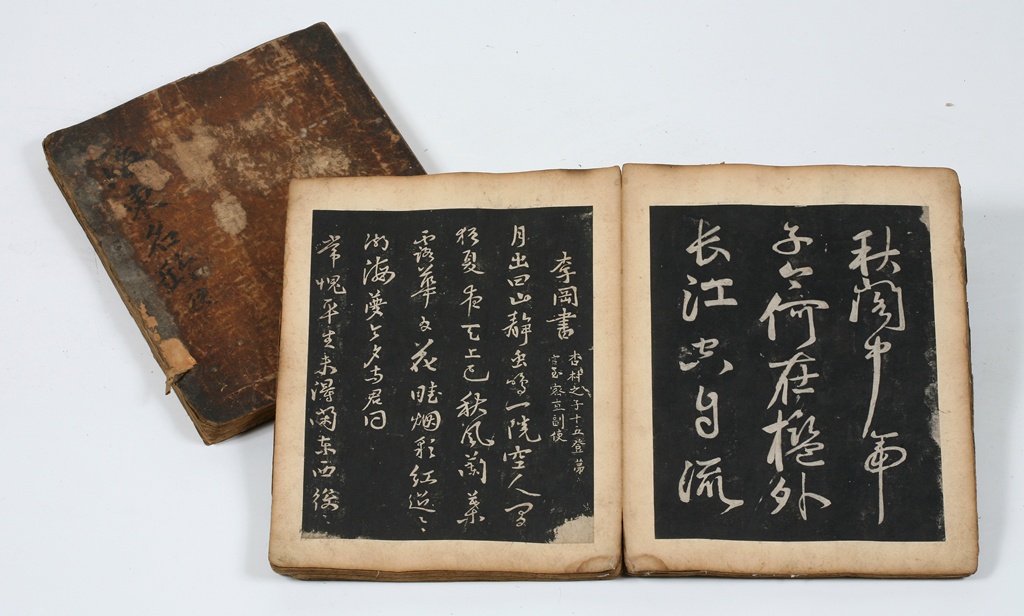 海東名蹟
秋閣中帝
子今何在檻外
長江空自流
李岡書
杏村之子十五登第
官至密直副使
月出四山靜虫鳴一院空人間
猶夏夜天上已秋風蘭葉
露華 花畦烟彩紅迢〻
湖海夢今夕与君同
常愧平生未得閑东西役〻